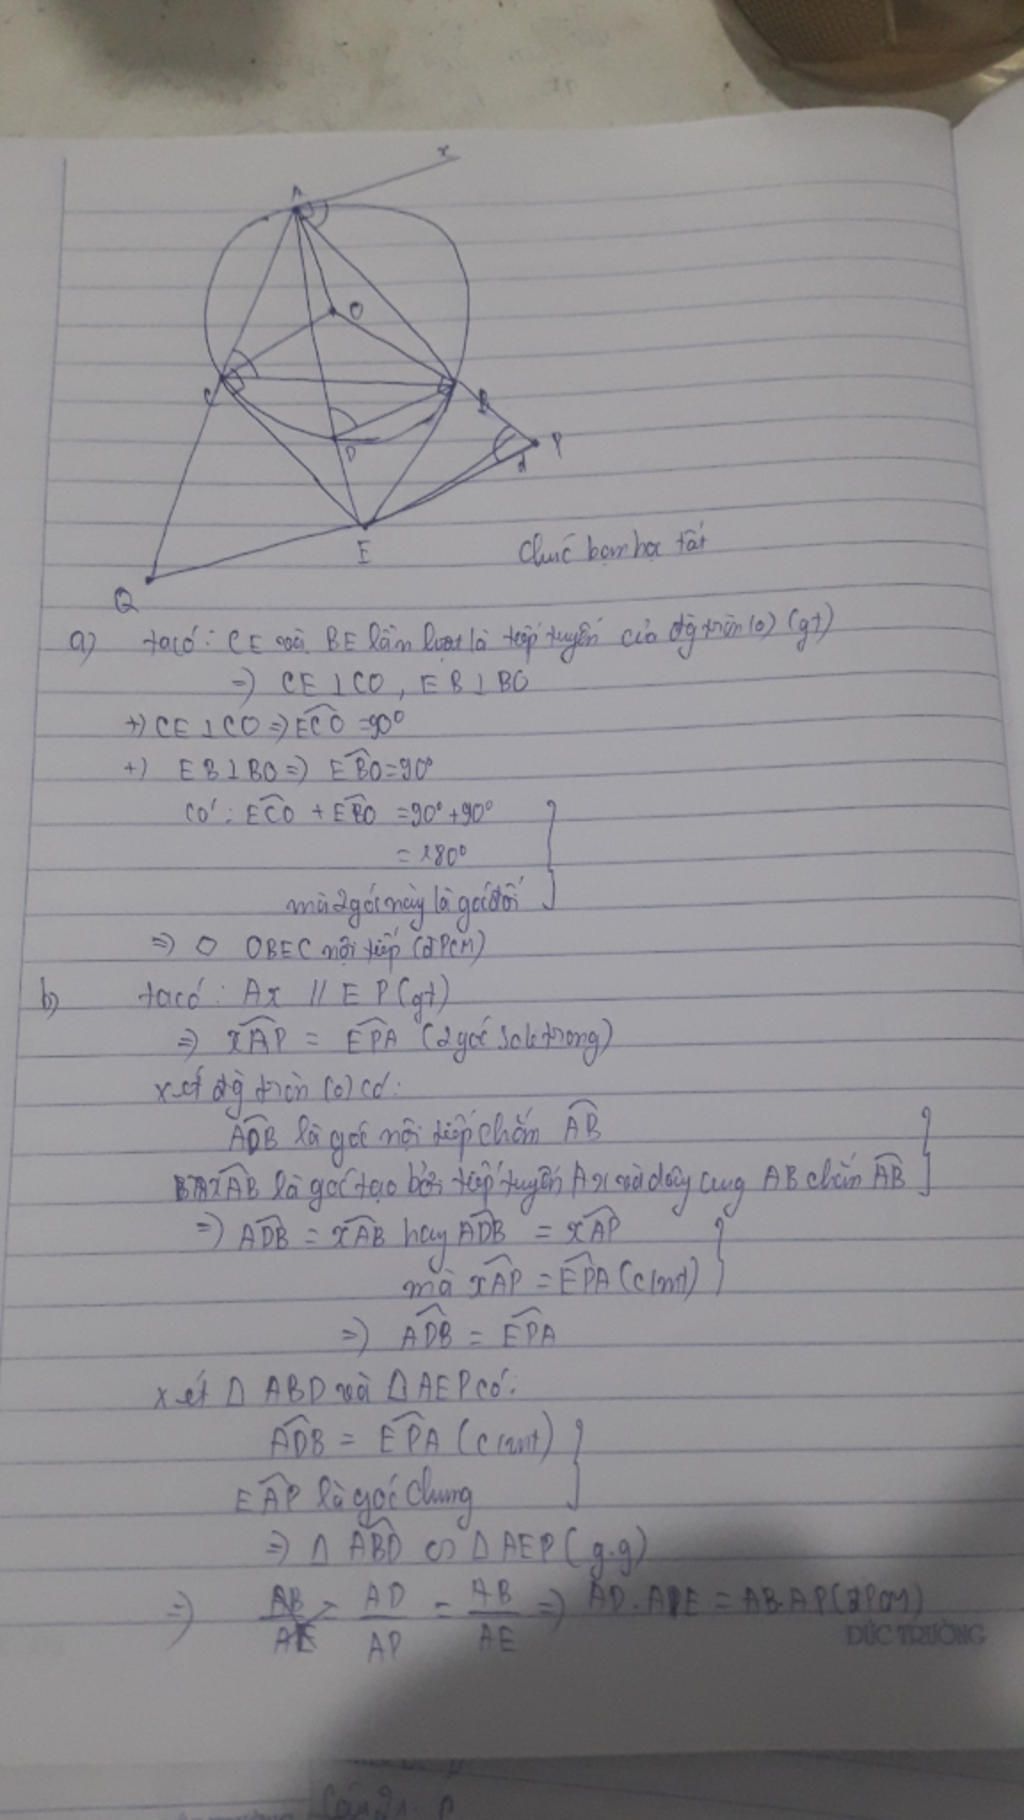 x
A
O
C
B
D
P
d
E
Q
Chúc bạn học tốt
a) ta có: CE và BE lần lượt là tiếp tuyến của đg tròn (O) (gt)
=> CE ⊥ CO, EB ⊥ BO
+) CE ⊥ CO => ECO = 90°
+) EB ⊥ BO => EBO = 90°
Có: ECO + EBO = 90° + 90°
= 180°
mà 2 góc này là góc đối
=> OBEC nội tiếp (đPCM)
b) ta có: Ax // EP (gt)
=> xAP = EPA (2 góc sole trong)
xét đg tròn (O) có:
ADB là góc nội tiếp chắn AB
xAB là góc tạo bởi tiếp tuyến Ax và dây cung AB chắn AB
=> ADB = xAB hay ADB = xAP
mà xAP = EPA (cmt)
=> ADB = EPA
xét Δ ABD và Δ AEP có:
ADB = EPA (cmt)
EAP là góc chung
=> Δ ABD ∽ Δ AEP (g.g)
=> AD/AP = AB/AE => AD.AE = AB.AP (đPCM)
ĐỨC TRƯỜNG